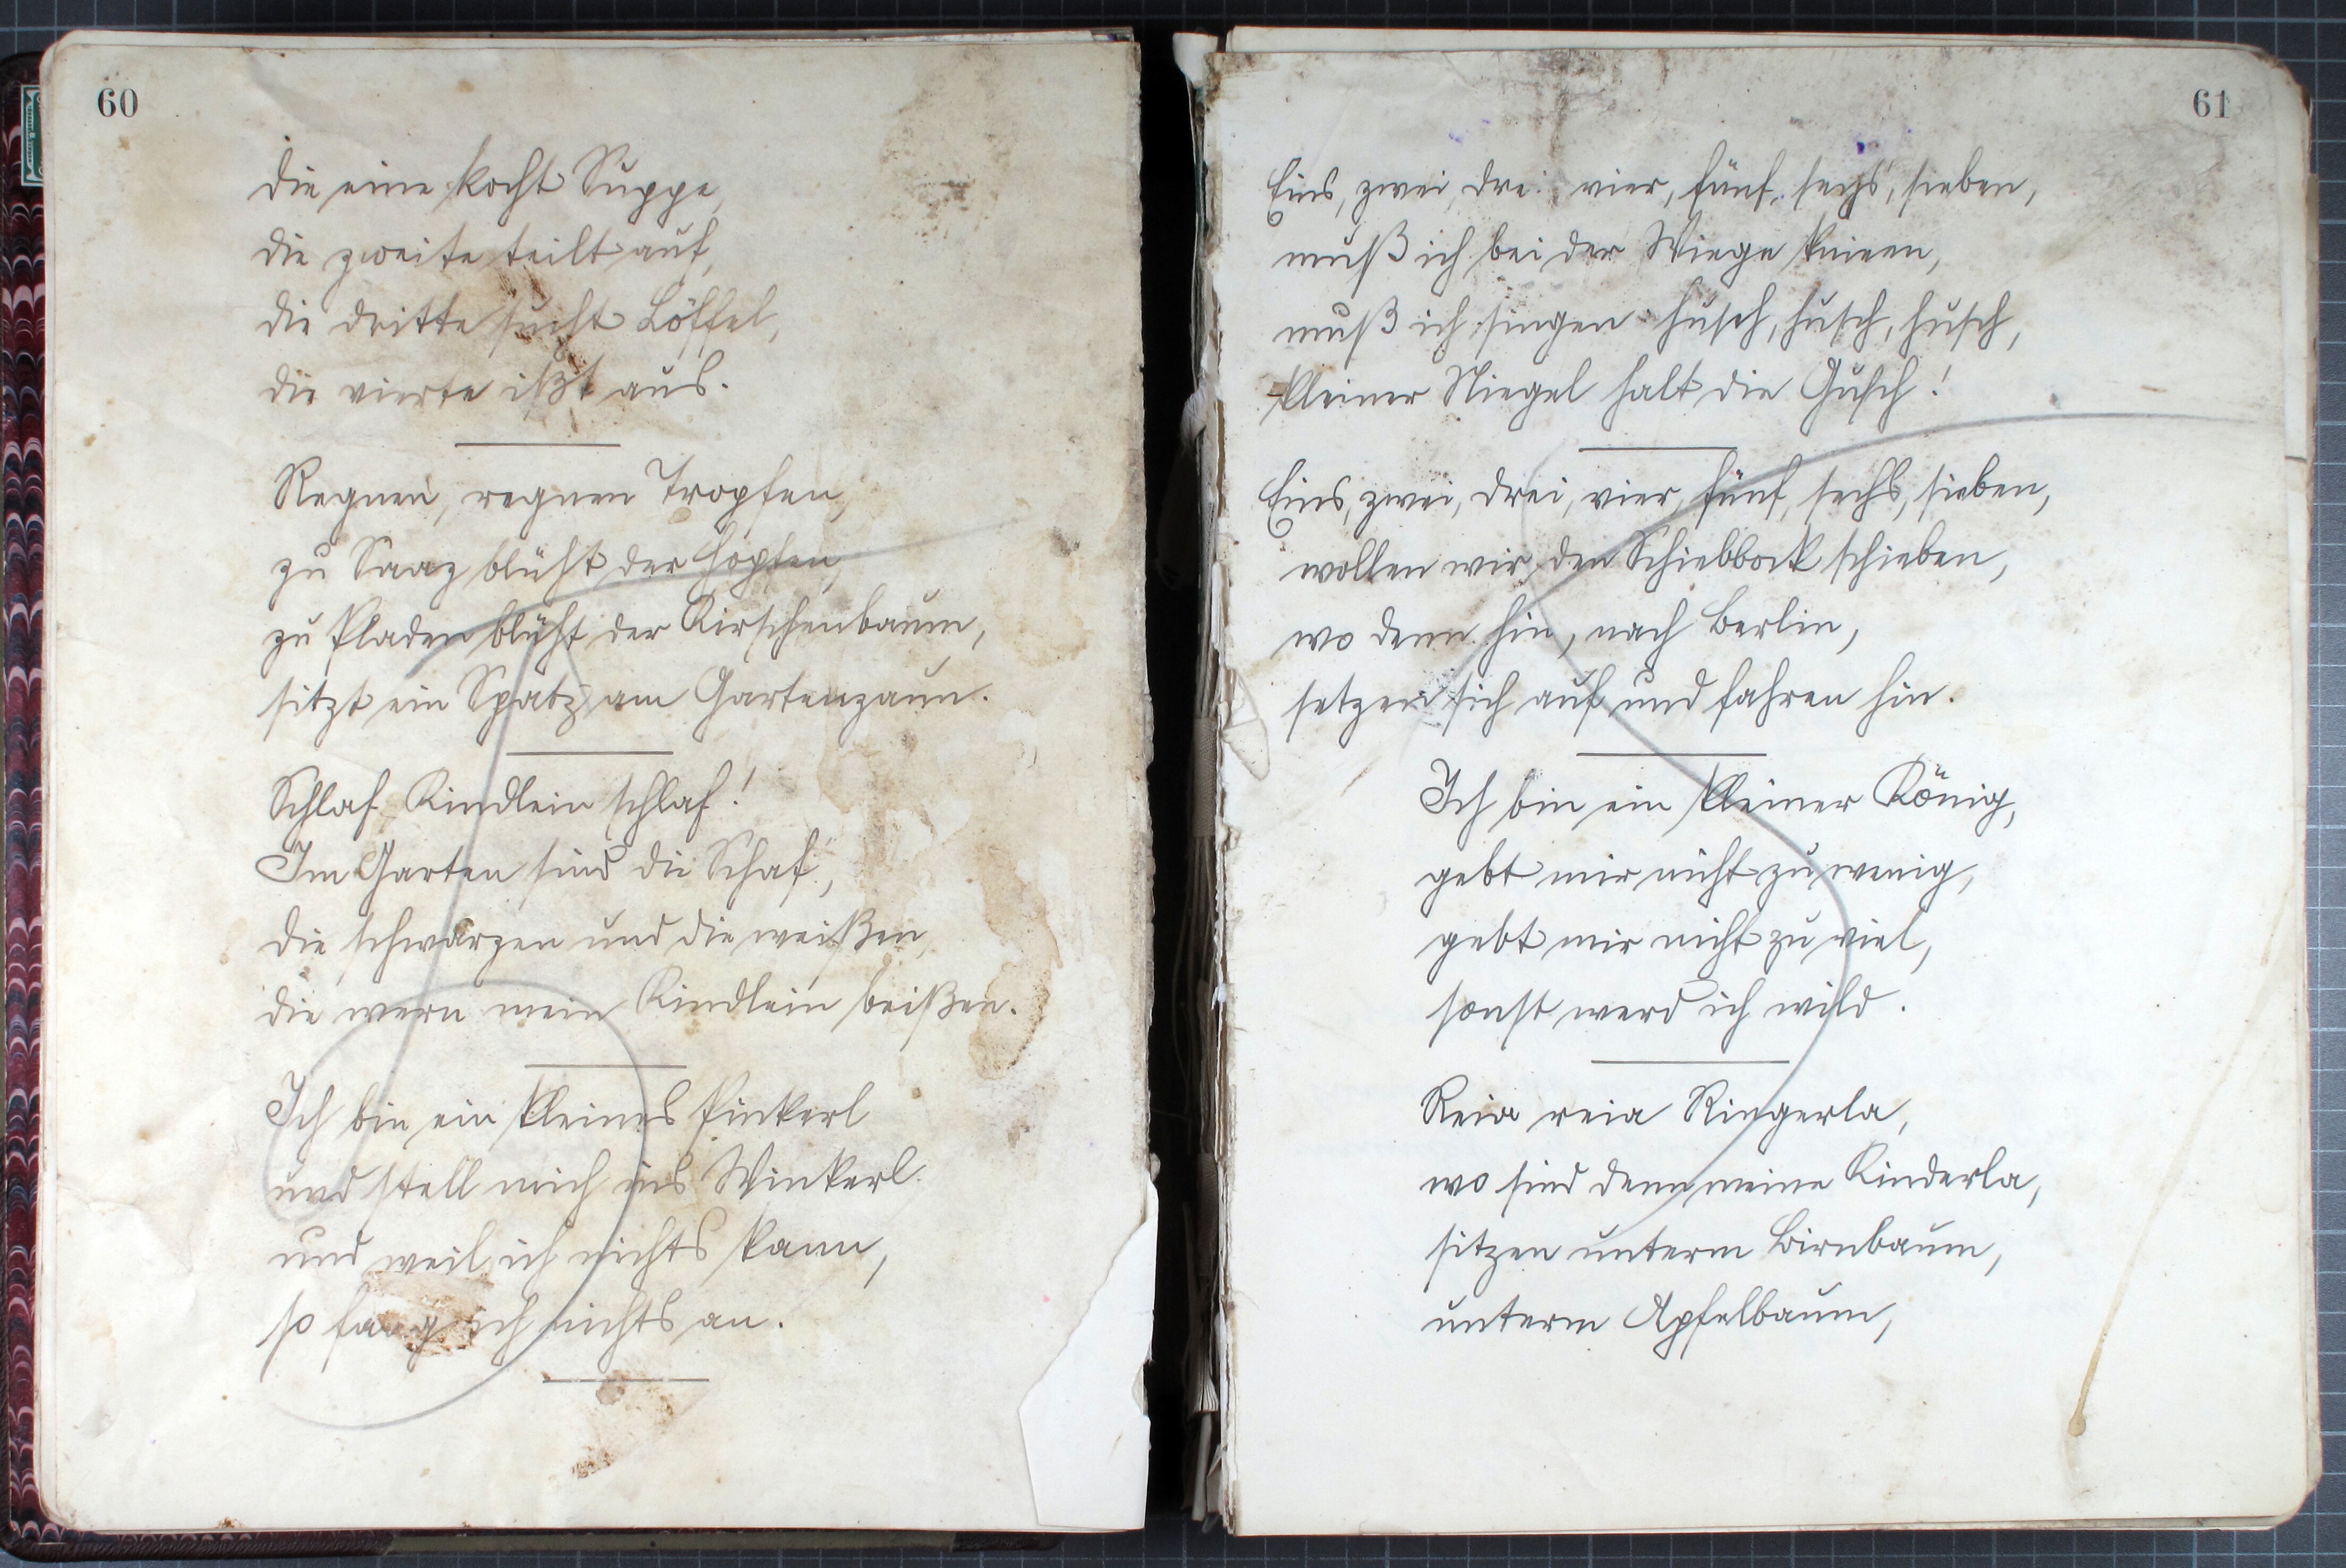 60
die eine kocht Suppe,
die zweite teilt auf,
die dritte sucht Löffel,
die vierte ißt aus.
Regnen, regnen Tropfen,
zu Saaz blüht der Hopfen,
zu Kladen blüht der Kirschenbaum,
sitzt ein Spatz am Gartenzaun.
Schlaf Kindlein schlaf!
Im Garten sind die Schaf,
die schwarzen und die weißen,
die wern mein Kindlein beißen.
Ich bin ein kleines Pinkerl
und stell mich ins Winkerl
und weil ich nichts kann,
so fang ich nichts an.
61
Eins, zwei, drei, vier, fünf, sechs, sieben,
muß ich bei der Wiege knieen,
muß ich singen husch, husch, husch,
kleiner Niegel halt die Gusch!
Eins, zwei, drei, vier, fünf, sechs, sieben,
wollen wir den Schiebbock schieben,
wo denn hin, nach Berlin,
setzen sich auf und fahren hin.
Ich bin ein kleiner König,
gebt mir nicht zu wenig,
gebt mir nicht zu viel,
sonst werd ich wild.
Reia reia Ringerla,
wo sind denn meine Kinderla,
sitzen unterm Birnbaum,
unterm Apfelbaum,